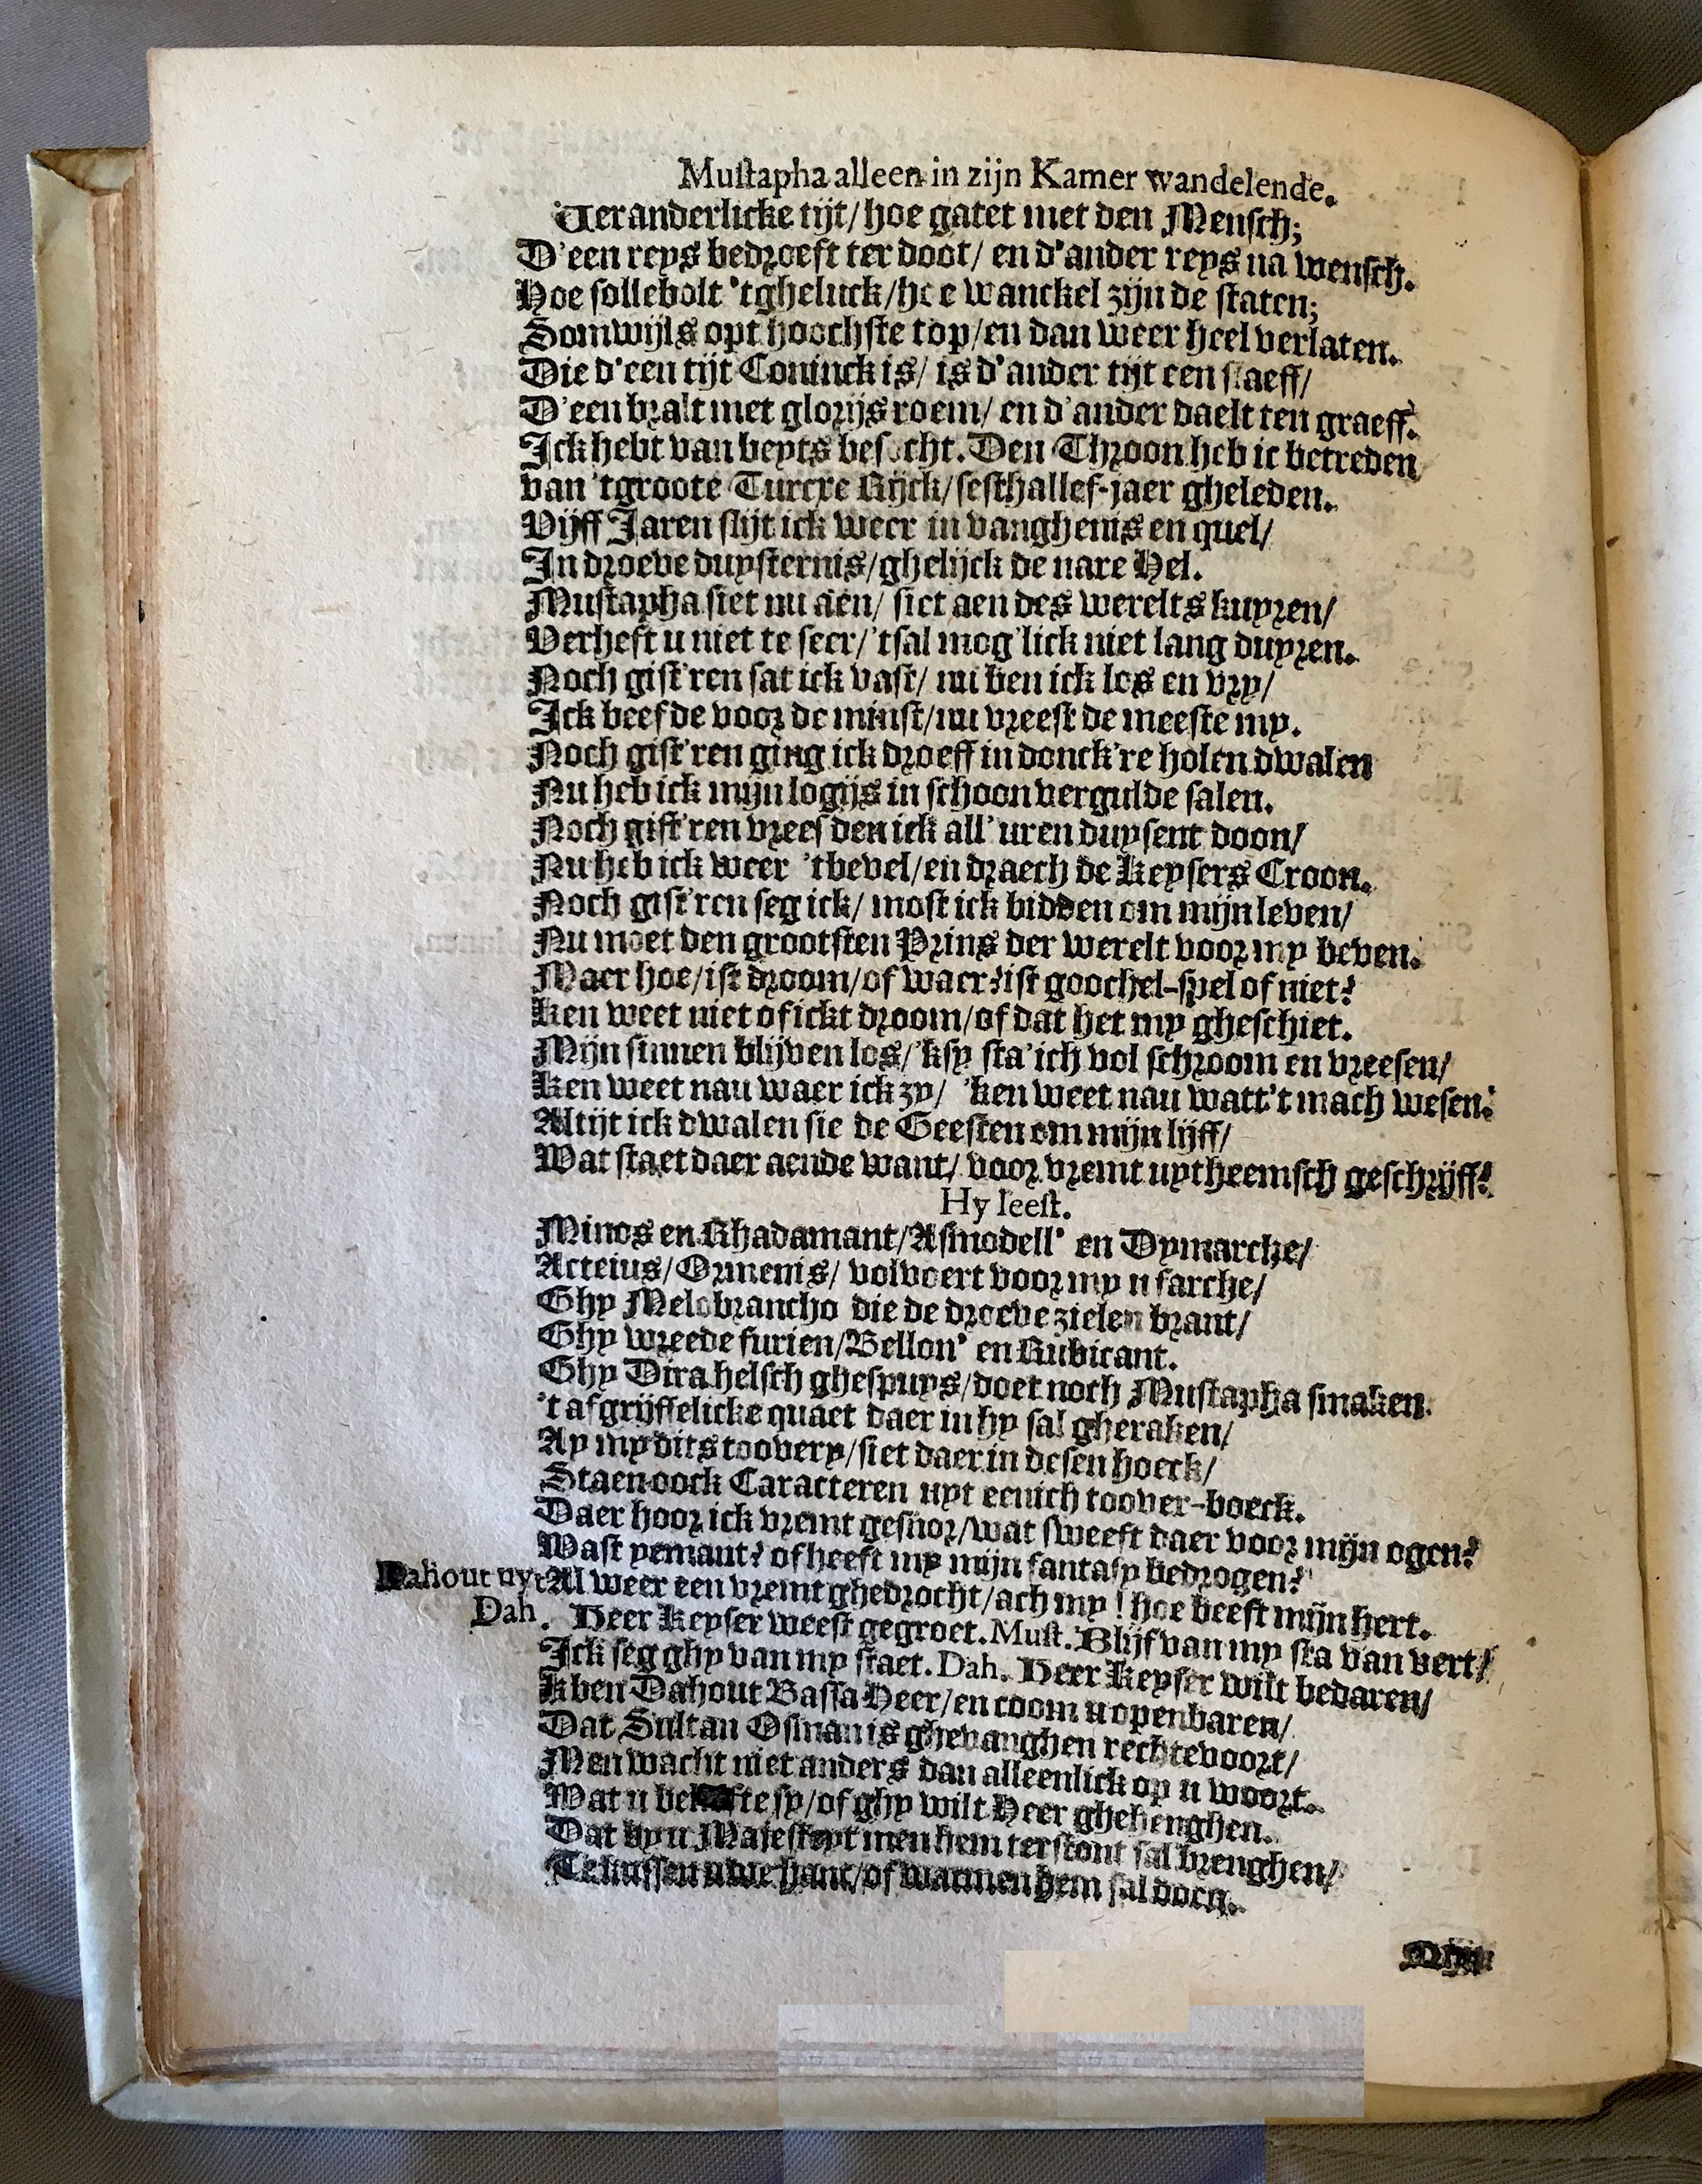 Mustapha alleen in zijn Kamer wandelende.
Veranderlicke tijt/ hoe gatet met den Mensch;
D'een reys bedroeft ter doot/ en d'ander reys na wensch.
Hoe sollebolt 'tgheluck/hoe wanckel zijn de staten;
Somwijls opt hoochste top/en dan weer heel verlaten.
Die d'een tijt Coninck is/ is d'ander tijt een slaeff/
D'een bralt met glorijs roem/ en d'ander daelt ten graeff.
Ick hebt van beyts besocht. Den Throon heb ic betreden
van 'tgroote Turcxe Rijck/sesthallef-jaer gheleden.
Vijff Jaren slijt ick weer in vanghenis en quel/
In droeve duysternis/ghelijck de nare Hel.
Mustapha siet nu aen/ siet aen des werelts kuyren/
Verheft u niet te seer/'tsal mog'lick niet lang duyren.
Noch gist'ren sat ick vast/ nu ben ick los en vry/
Ick beefde voor de minst/nu vreest de meeste my.
Noch gist'ren ging ick droeff in donck're holen dwalen
Nu heb ick mijn logijs in schoon vergulde salen.
Noch gist'ren vreesden ick all' uren duysent doon/
Nu heb ick weer 'tbevel/en draech de Keysers Croon.
Noch gist'ren seg ick/ most ick bidden om mijn leven/
Nu moet den grootsten Prins der werelt voor my beven.
Maer hoe/ist droom/of waer?ist goochel-spel of niet?
Ken weet niet of ickt droom/of dat het my gheschiet.
Mijn sinnen blijven los/'ksy sta'ich vol schroom en vreesen/
Ken weet nau waer ick zy/ 'ken weet nau watt't mach wesen.
Altijt ick dwalen sie de Geesten om mijn lijff/
Wat staet daer aende want/ voor vremt uytheemsch geschrijff!
Hy leest.
Minos en Rhadamant/Asmodell' en Dymarche/
Acteius/Ormenis/ volvoert voor my u farche/
Ghy Melobrancho die de droeve zielen brant/
Ghy wreede furien/Bellon' en Rubicant.
Ghy Dira helsch ghespuys/doet noch Mustapha smaken.
't afgrijffelicke quaet daer in hy sal gheraken/
Ay my dits toovery/siet daer in desen hoeck/
Staen oock Caracteren uyt eenich toover-boeck.
Daer hoor ick vremt gesnor/wat sweeft daer voor mijn ogen?
Wast yemant? of heeft my mijn fantasy bedrogen?
Dahout uyt Al weer een vremt ghedrocht/ach my ! hoe beeft mijn hert.
Dah. Heer Keyser weest gegroet. Must. Blijf van my sta van vert/
Ick seg ghy van my staet. Dah. Heer Keyser wilt bedaren/
Kben Dahout Bassa Heer/en coom u openbaren/
Dat Sultan Osman is ghevanghen rechtevoort/
Men wacht niet anders dan alleenlick op u woort.
Wat u belieftesy/of ghy wilt Heer ghehenghen.
Dat by u Majesteyt men hem terstont sal brenghen/
Te kussen uwe hant/of wat men hem sal doen.